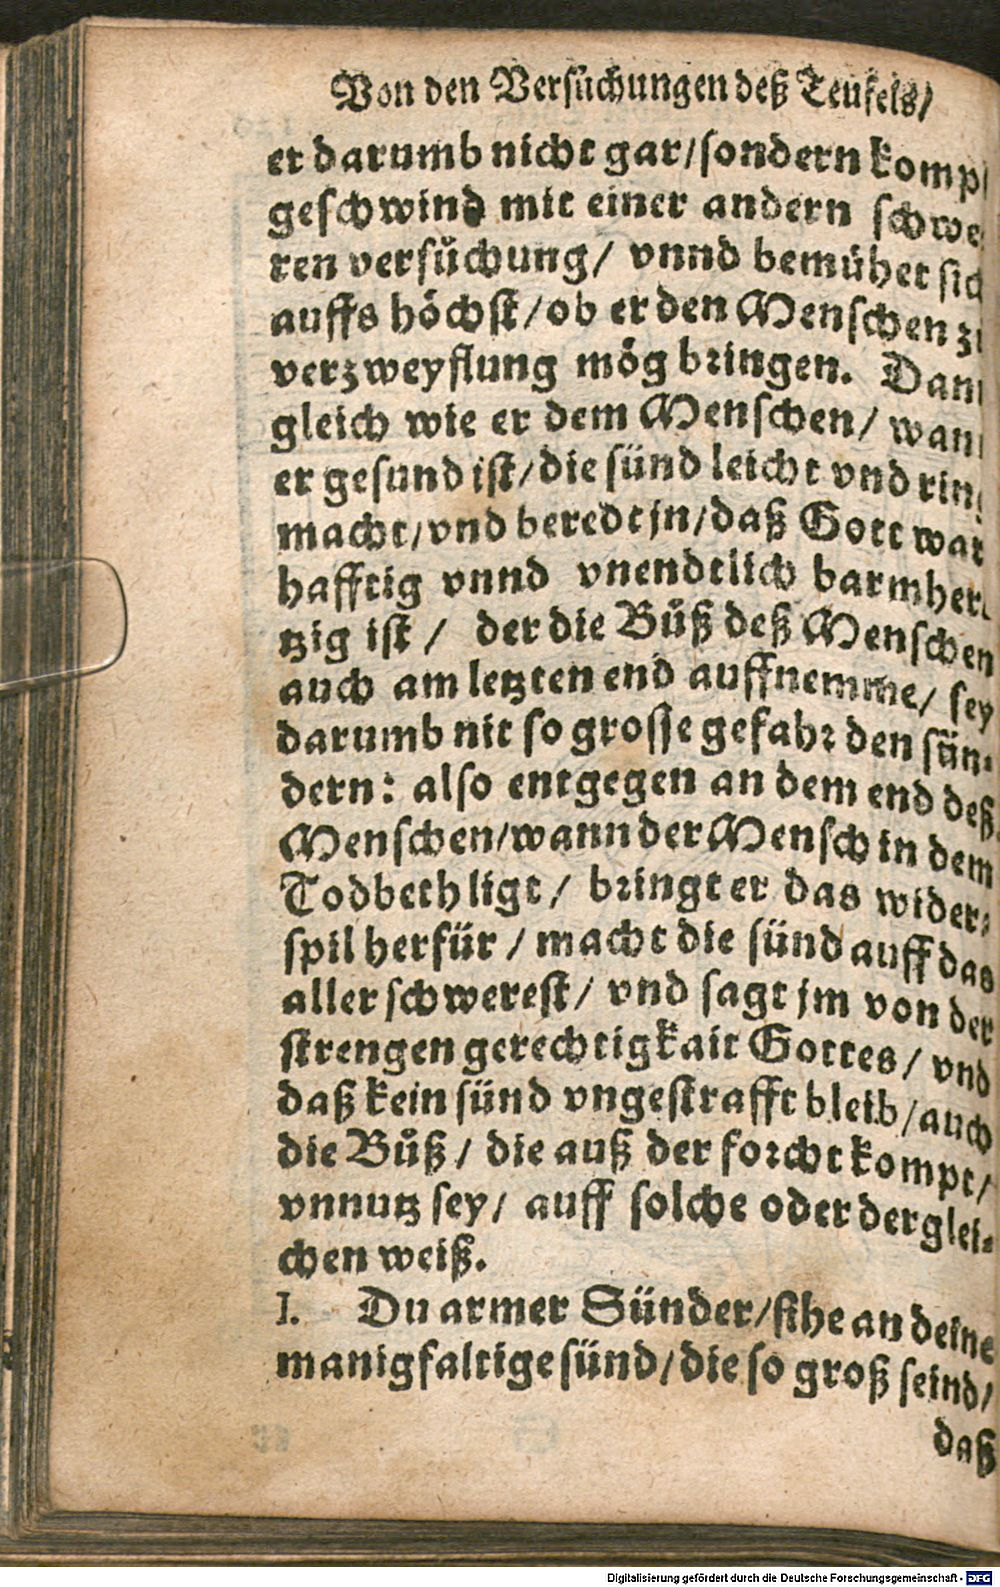 Von den Versuͤchungen deß Teufels/
er darumb nicht gar/sondern komp
geschwind mit einer andern schwe
ren versuͤchung/ vnnd bemühet sich
auffs höchst/ob er den Menschen zu
verzweyflung mög bringen. Dann
gleich wie er dem Menschen/ wann
er gesund ist/die sünd leicht vnd ring
macht/vnd beredt jn/daß Gott war
hafftig vnnd vnendtlich barmher
tzig ist/ der die Buͤß deß Menschen
auch am letzten end auffnemme/ sey
darumb nit so grosse gefahr den sün-
dern: also entgegen an dem end deß
Menschen/wann der Mensch in dem
Todbeth ligt/ bringt er das wider-
spil herfür/ macht die sünd auff das
aller schwerest/ vnd sagt jm von der
strengen gerechtigkait Gottes/ vnd
daß kein sünd vngestrafft bleib/auch
die Buͤß/ die auß der forcht kompt/
vnnutz sey/ auff solche oder derglei-
chen weiß.
I. Du armer Sünder/sihe an deine
manigfaltige sünd/die so groß seind/
daß
Digitalisierung gefördert durch die Deutsche Forschungsgemeinschaft - DFG